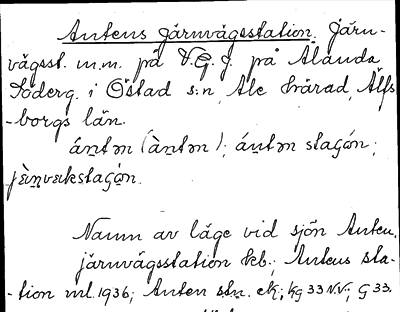 Antens järnvägsstation. Järn-
vägsst. m.m. på V.G.J. på Alanda
Söderg. i Östad s:n, Ale härad, Älfs-
-borgs län.
ántən (àntən); ántən stagón;
jæ̀ṇvækstagón.
Namn av läge vid sjön Anten.
järnvägsstation keb.; Antens sta-
-tion ml. 1936; Anten stn. ek; kg 33 N.V.; G 33.